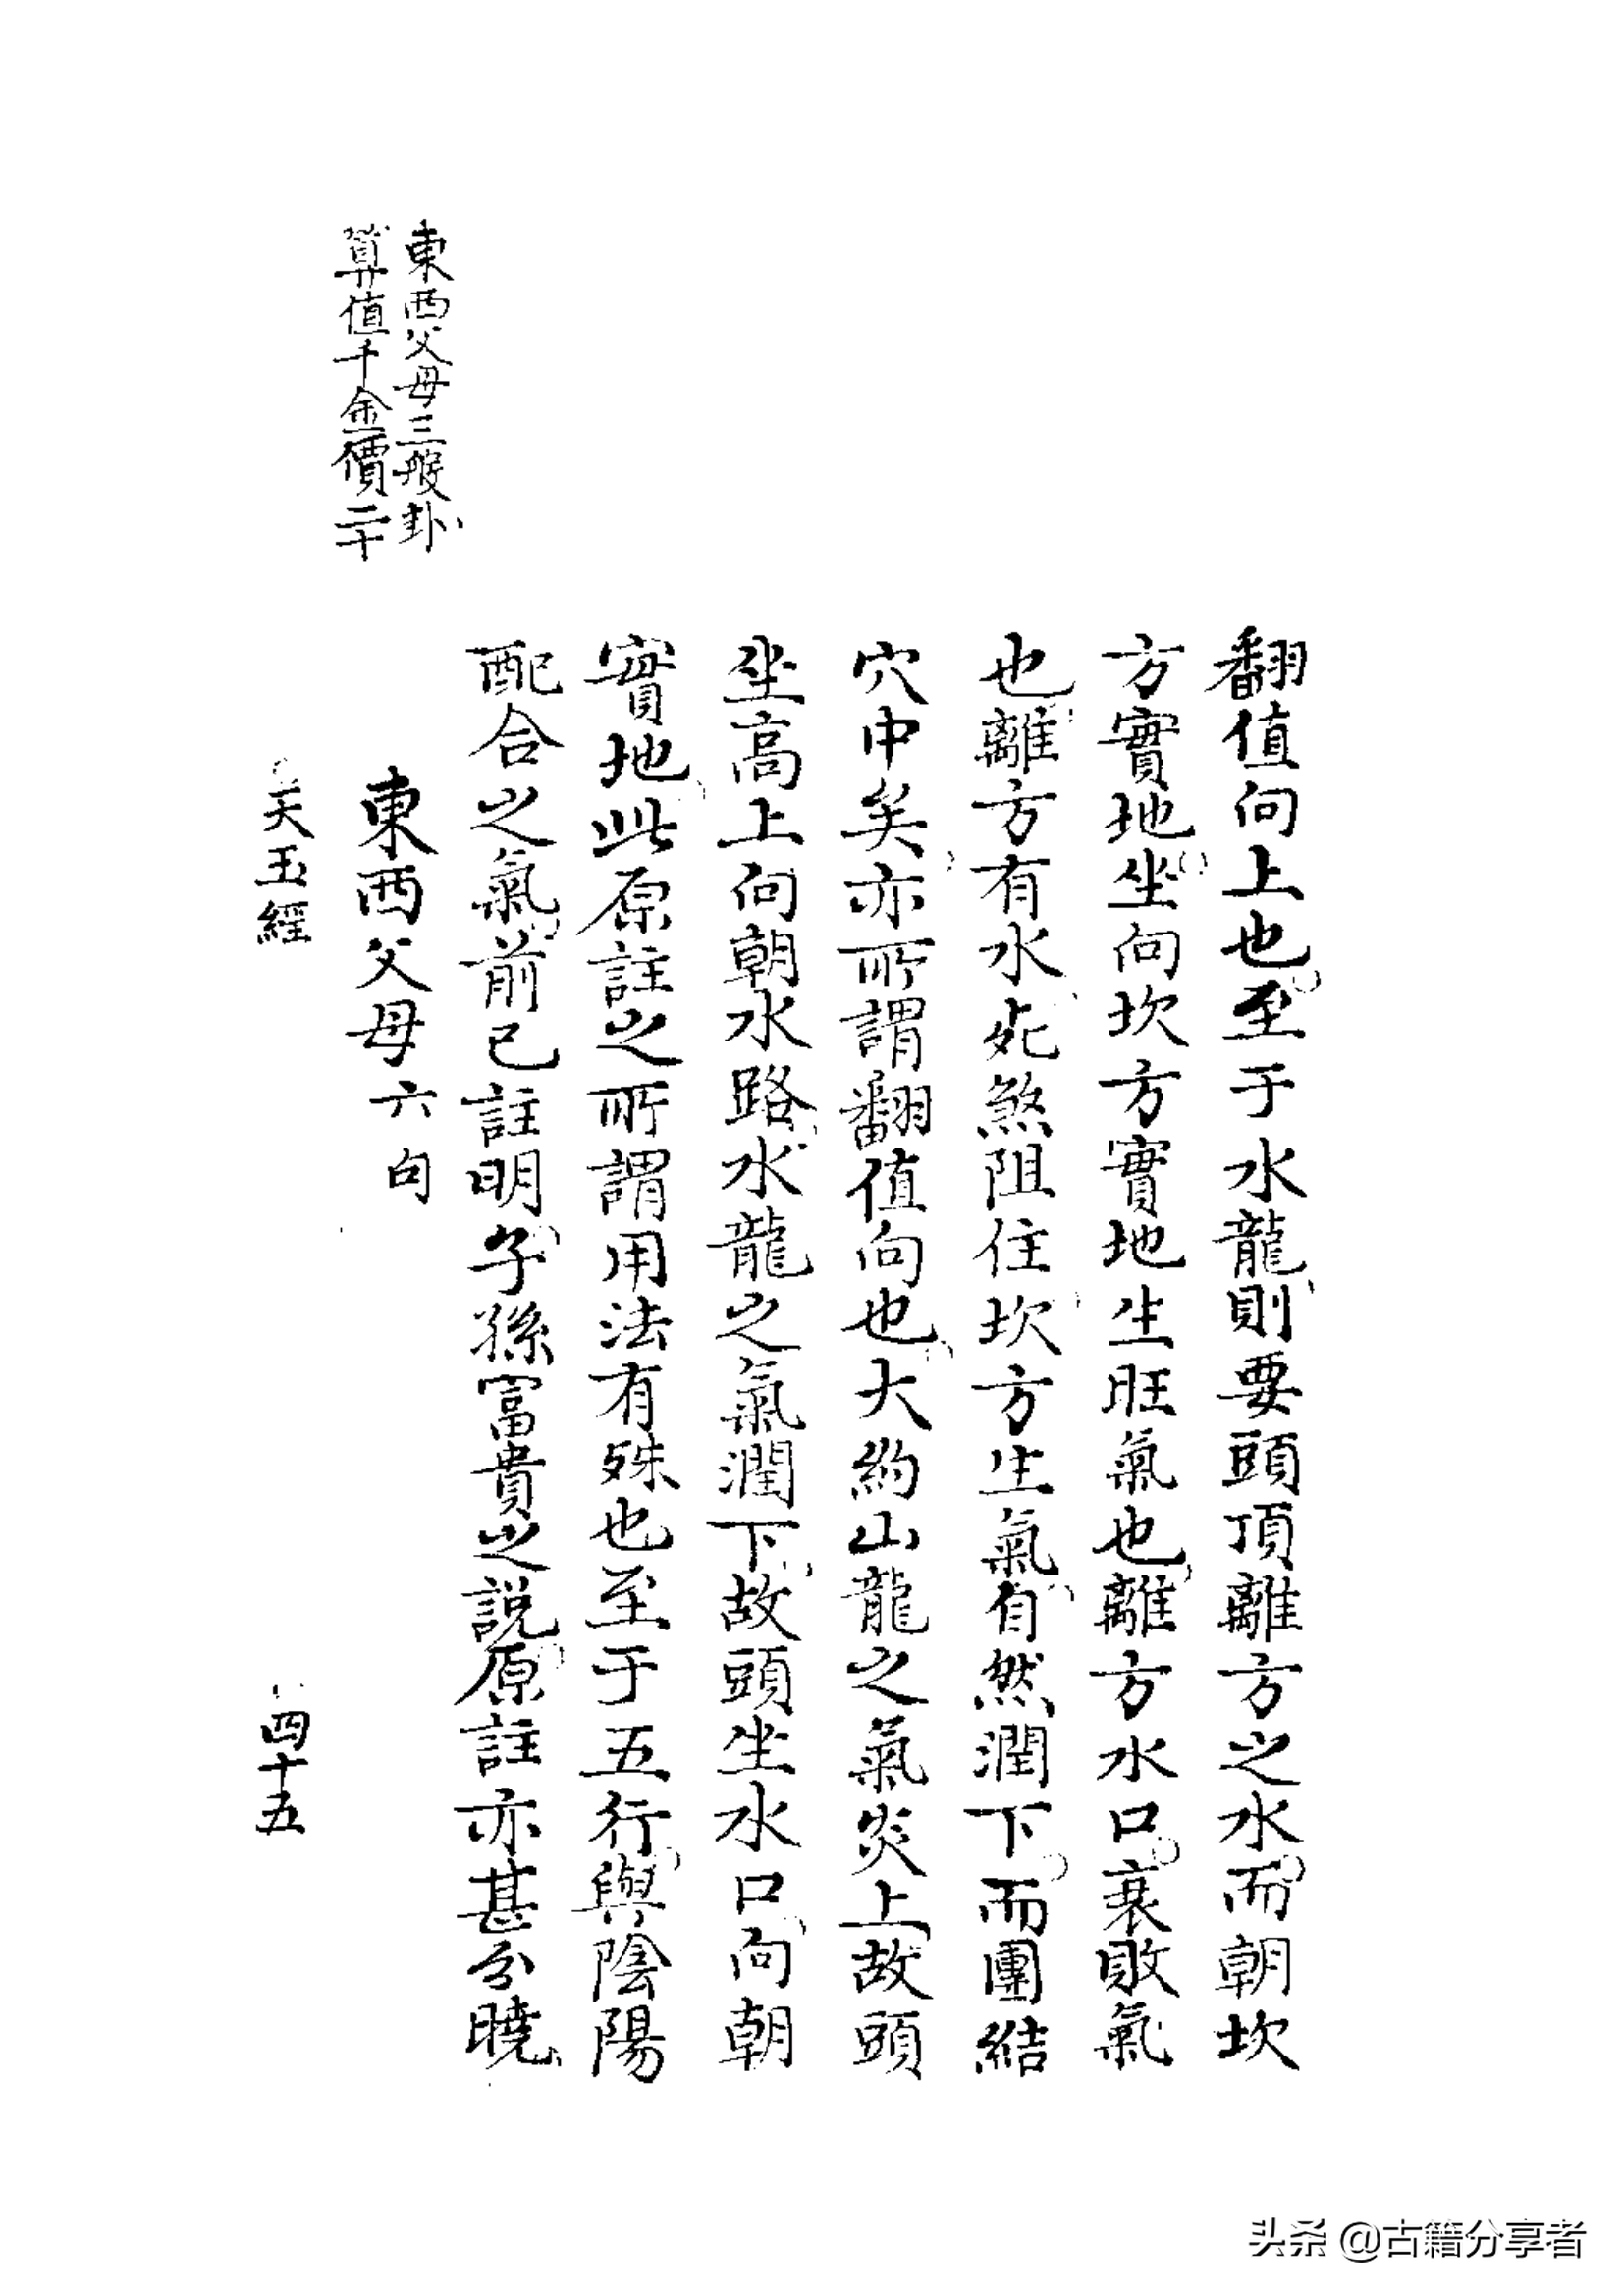 翻值向上也至于水龍則要頭頂離方之水而朝坎
方實地坐向坎方實地生旺氣也離方水口衰敗氣
也離方有水死煞阻住坎方生氣自然潤下而團結
穴中矣亦所謂翻值向也大約山龍之氣炎上故頭
坐高上向朝水路水龍之氣潤下故頭坐水口向朝
實地此原註之所謂用法有殊也至于五行與陰陽
配合之氣前已註明子孫富貴之説原註亦甚分曉
東西父母三般卦
算值千金價二十
東西父母六句
天玉經
四十五
头条 @古籍分享者